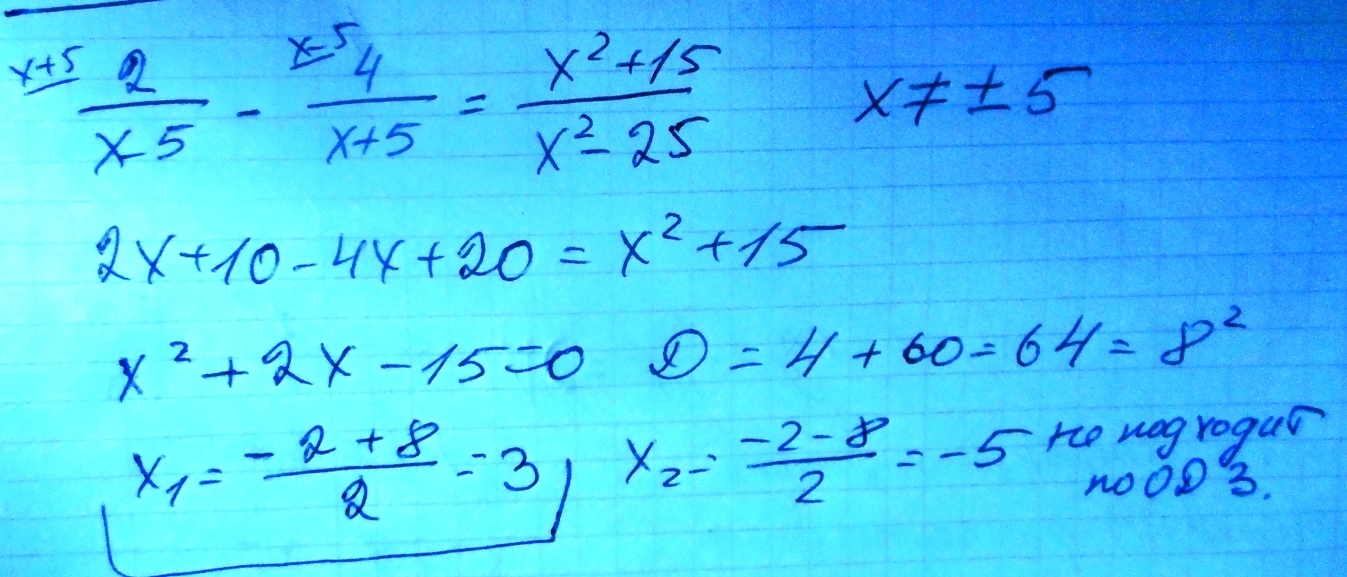 x+5 2/(x-5) - x-5 4/(x+5) = (x²+15)/(x²-25) x ≠ ±5
2x+10-4x+20 = x²+15
x²+2x-15=0 D = 4+60=64=8²
x₁ = (-2+8)/2 = 3 x₂ = (-2-8)/2 = -5 не подходит
по ОДЗ.